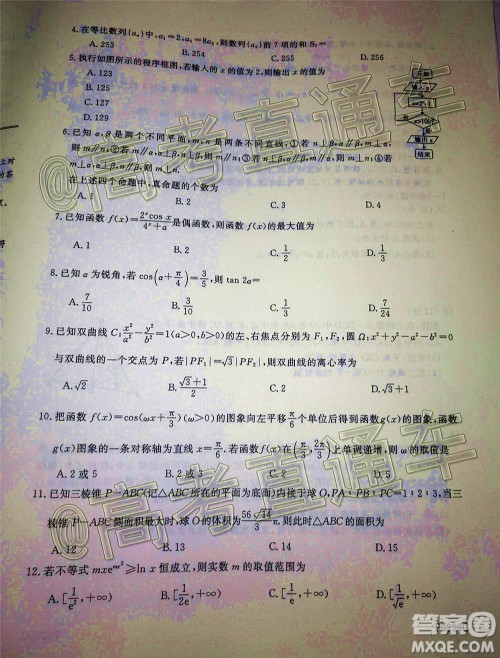 4.在等比数列{aₙ}中,a₁=2,a₅=8a₂,则数列{aₙ}前7项的和S₇=
A. 253 B. 254 C. 255 D. 256
5.执行如图所示的程序框图,若输入的x的值为2,则输出x的值为
A. 123
B. 125
C. 127
D. 129
开始
输入x
输出x
结束
6.已知α,β是两个不同平面,m,n是两条不同直线:①若
在上述四个命题中,真命题的个数为
A. 1 B. 2 C. 3 D. 4
7.已知函数f(x)=2ˣcos x/(4ˣ+a)是偶函数,则函数f(x)的最大值为
A. 1 B. 2 C. 1/2 D. 1/3
8.已知α为锐角,若cos(α+π/4)=3/5,则tan 2α=
A. 7/10 B. 3/10 C. 1/3 D. 7/24
9.已知双曲线C:x²/a²−y²/b²=1(a>0,b>0)的左、右焦点分别为F₁,F₂,圆Ω:x²+y²−a²−b²=0
与双曲线的一个交点为P,若|PF₁|=√3|PF₂|,则双曲线的离心率为
A. √3 B. (√3+1)/2 C. 2 D. √3+1
10.把函数f(x)=cos(ωx+π/3)(ω>0)的图象向左平移π/6个单位后得到函数g(x)的图象,函数
g(x)图象的一条对称轴为直线x=π/6.若函数f(x)在(π/3,2π/3)上单调递增,则ω的取值是
A. 2或5 B. 2 C. 5 D. 2或8
11.已知三棱锥P−ABC(记△ABC所在的平面为底面)内接于球O,PA:PB:PC=1:2:3,当三
棱锥P−ABC侧面积最大时,球O的体积为56√14/3π.则此时△ABC的面积为
A. 12 B. 13 C. 14 D. 15
12.若不等式mxe^(mx²)≥ln x恒成立,则实数m的取值范围为
A. [1/e²,+∞) B. [1/2e,+∞) C. [1/e,+∞) D. [1/√e,+∞)
@高考直通车
@高考直通车
答案圈
MXQE.COM